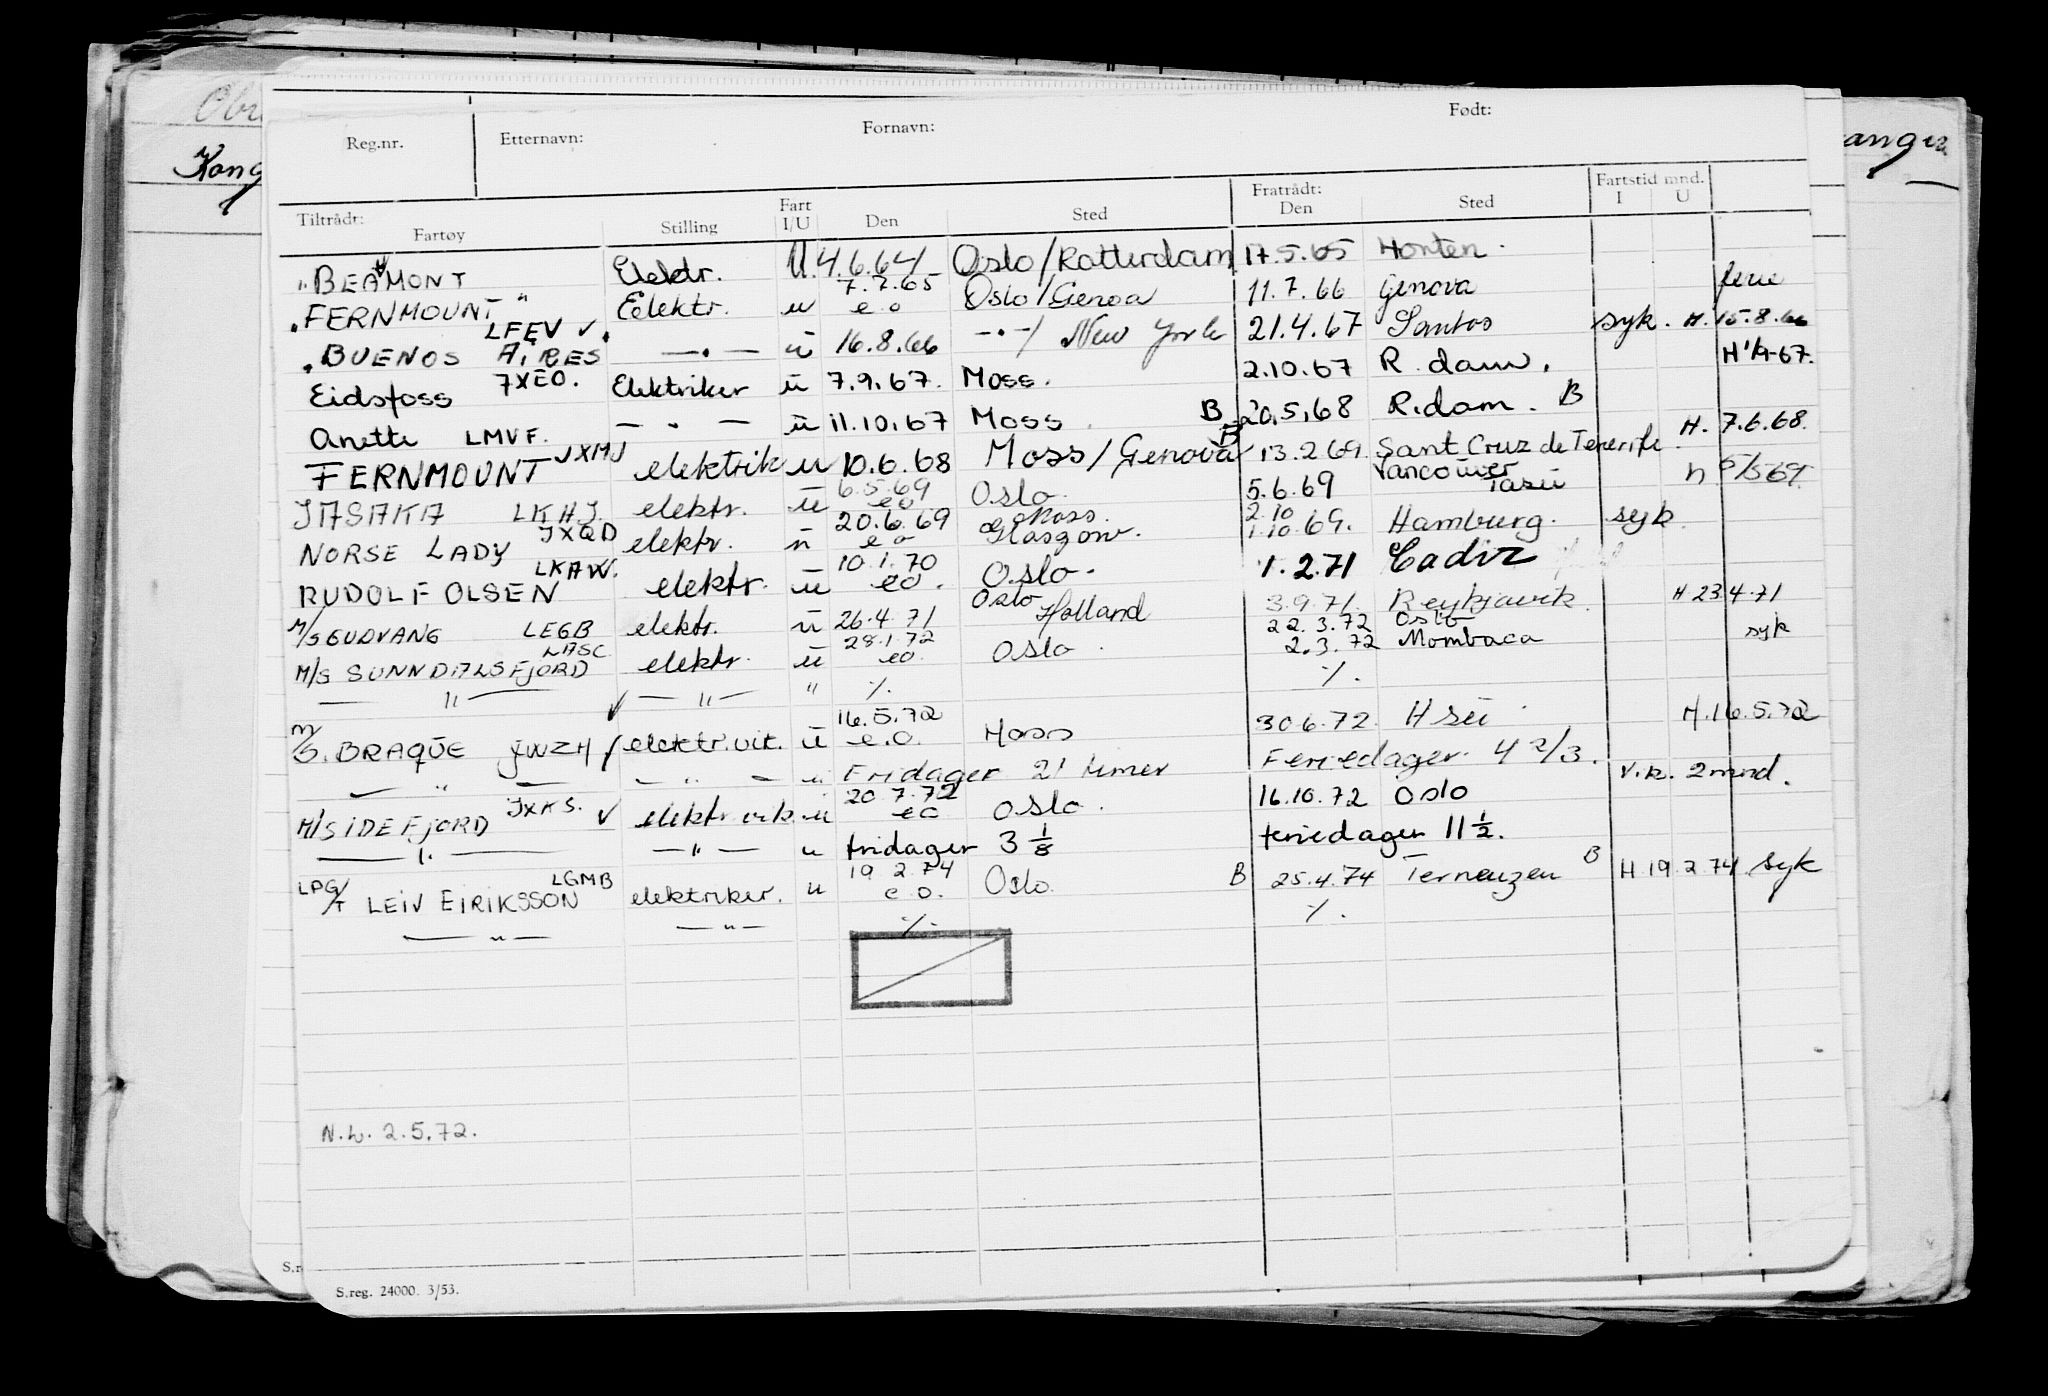 Reg.nr. Etternavn: Fornavn: Født:
Kong
anger
Tiltrådt: Fratrådt: Fartstid mnd.
Fartøy Stilling Fart I/U Den Sted Den Sted I U
"BEAMONT Elektr. U. 4.6.64 Oslo/Rotterdam 17.5.65 Horten.
"FERNMOUNT" Eelektr. u 7.7.65 e o Oslo/Genoa 11.7.66 Genova ferie
"BUENOS AIRES LFEV √. —•— u 16.8.66 —•—/ New York 21.4.67 Santos syk. H. 15.8.66
Eidsfoss JXEO. Elektriker u 7.9.67. Moss. 2.10.67 R.dam. H 1/9-67.
Anette LMVF. — " — u 11.10.67 Moss. B 20.5.68 R.dam. B
FERNMOUNT JXMJ elektrik u 10.6.68 Moss/Genova B 13.2.69. Sant Cruz de Tenerife. H. 7.6.68.
JASAKA LKHJ. elektr. u 6.5.69 eo Oslo. 5.6.69 Vancouver Tasu h 5/5 69.
NORSE LADY JXQD elektr. u 20.6.69 e o Moss. Glasgow. 2.10 1.10.69. Hamburg. syk.
RUDOLF OLSEN LKAW. elektr. u 10.1.70 eo. Oslo. 1.2.71 Cadiz
M/S GUDVANG LEGB elektr. u 26.4.71 Oslo Holland 3.9.71. Reykjavik. H 23.4.71
M/S SUNNDALSFJORD LASC elektr. u 28.1.72 eo. Oslo. 22.3.72 Oslo 2.3.72 Mombaca syk
— " — √ — " — " ·/. ·/.
M/S. BRAQUE JWZH / elektr.vik. u 16.5.72 e.o. Moss 30.6.72. H sü H.16.5.72
— " — — " — u Fridager 21 timer Feriedager. 4 2/3.
M/S IDEFJORD JXKS. √ elektr.vik. u 20.7.72 eo Oslo. 16.10.72 Oslo v.k. 2 mnd.
— " — — " — u fridager 3 1/8 feriedager 11 1/2.
LPG/T LEIV EIRIKSSON LGMB elektriker. u 19.2.74 e o. Oslo. B 25.4.74 Terneuzen B H.19.2.74 syk
— " — — " — ·/. ·/.
N.L. 2.5.72.
S.reg. 24000. 3/53.